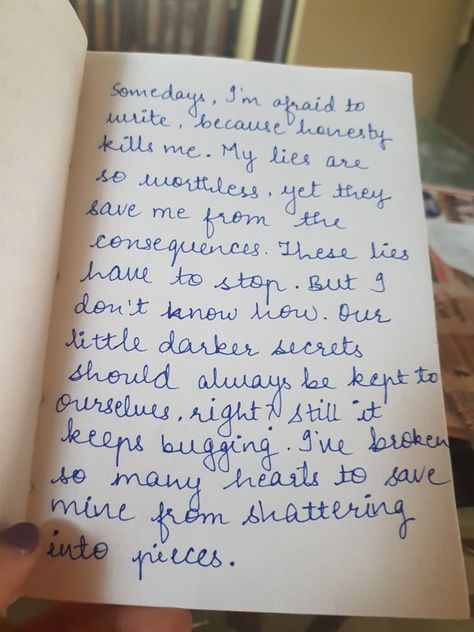 Somedays, I'm afraid to
write, because honesty
kills me. My lies are
so worthless, yet they
save me from the
consequences. These lies
have to stop. But I
don't know how. Our
little darker secrets
should always be kept to
ourselves, right? Still it
keeps bugging. I've broken
so many hearts to save
mine from shattering
into pieces.